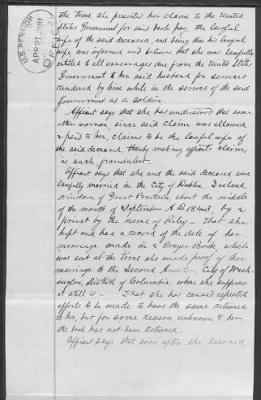 U.S. PENSION
OFFICE
the time she presented her claim to the United
States Government for said back pay, the lawful
wife of the said deceased, and being then his lawful
wife, was informed and believes that she was lawfully
entitled to all arrearages due from the United State
Government to her said husband for services
rendered by him while in the service of the said
Government as a soldier.
Affiant says that she has understood that some
other woman, since said claim was allowed
& paid to her, claims to be the lawful wife of
the said deceased thereby making affiants claim,
as such fraudulent.
Affiant says that she and the said deceased were
lawfully married in the City of Dublin Ireland,
Kingdom of Great Britain about the middle
of the month of September A.D. by a
priest by the name of Riley - That she
kept and has a record of the date of her
marriage made in a Prayer Book, which
was sent at the time she made proof of her
marriage to the Second Auditor, City of Wash-
ington, District of Columbia where she supposes
it still is - That she has caused repeated
efforts to be made to have the same returned
to her, but for some reason unknown to her
the book has not been returned
Affiant says that soon after she learned